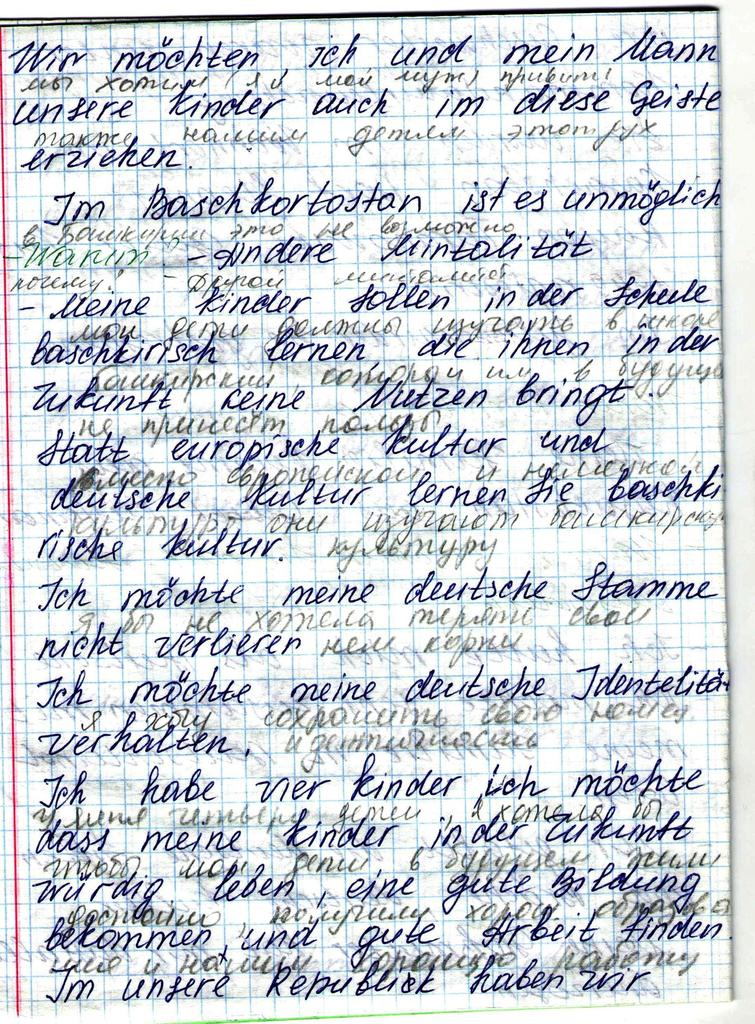 Wir möchten, ich und mein Mann
мы хотим (я и мой муж) привить
unsere Kinder auch im diese Geiste
также нашим детям этот дух
erziehen.
Im Baschkortostan ist es unmöglich
в Башкирии это не возможно
- Warum? - Andere Mintalität
почему? - Другой менталитет
- Meine Kinder sollen in der Schule
мои дети должны изучать в школе
baschkirisch lernen, die ihnen in der
башкирский, который им в будущ
Zukunft keine Nutzen bringt.
не принесёт пользы
Statt europische Kultur und
вместо европейской и немецкой
deutsche Kultur lernen Sie baschki
культуры они изучают башкирскую
rische Kultur. культуру
Ich möchte meine deutsche Stamme
я бы не хотела терять свои
nicht verlieren нем корни
Ich möchte meine deutsche Identelität
я хочу сохранить свою немец
verhalten. идентичность
Ich habe vier Kinder ich möchte
у меня четверо детей, я хотела бы
dass meine Kinder in der Zukunft
чтобы мои дети в будущем жили
würdig leben, eine gute Bildung
достойно получили хорош образова
bekommen, und gute Arbeit finden.
ние и нашли хорошую работу
Im unsere Republick haben wir